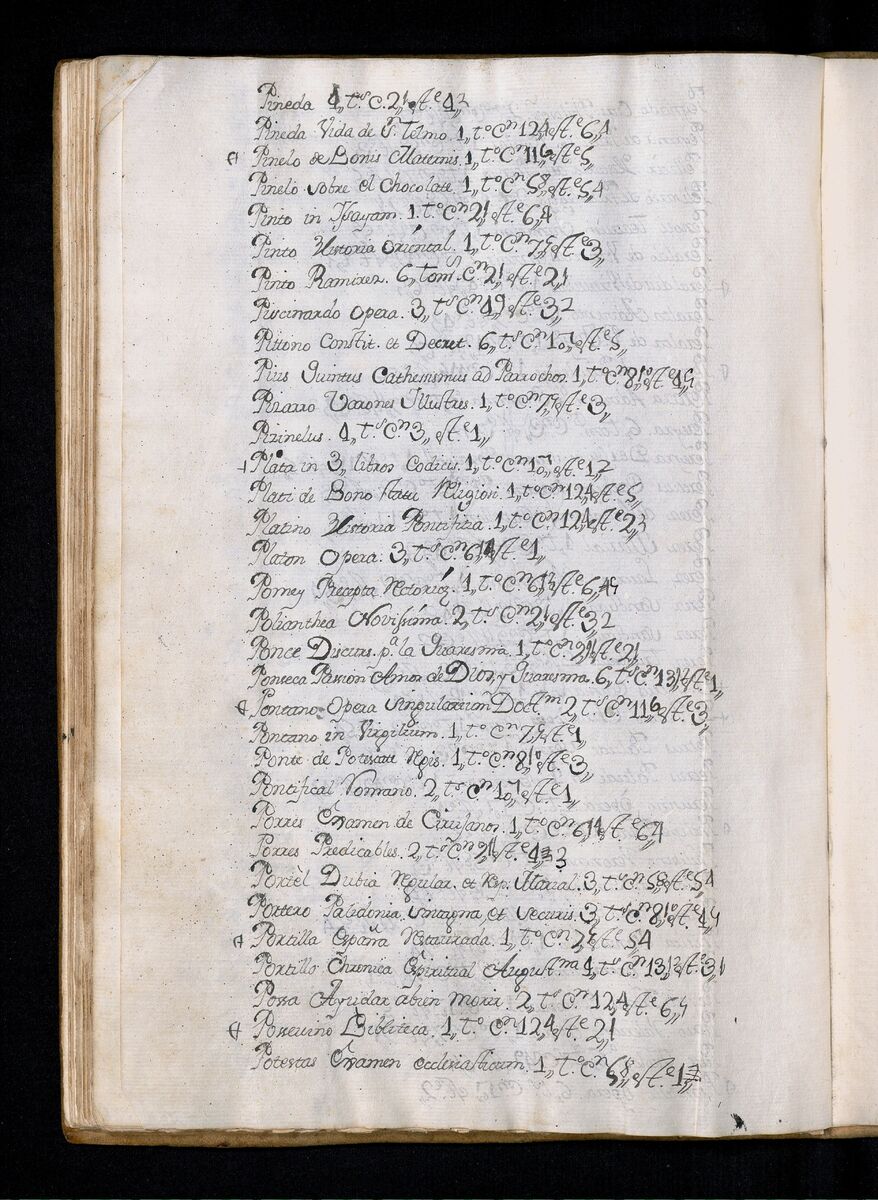 Pineda 4,, t.s C. 21 est.e 42
Pineda Vida de S. Telmo. 1,, t.o C.n 124 est.e 6,,4
Pinelo de Bonis Maternis. 1,, t.o C.n 116 est.e 5,,
Pinelo sobre el chocolate. 1,, t.o C.n 58 est.e 5,,4
Pinto in Isayam. 1. t.o C.n 21 est.e 6,,4
Pinto Historia oriental. 1,, t.o C.n 75 est.e 3,,
Pinto Ramirez. 6,, toms. C.n 21 est.e 2,,1
Piscinardo opera. 3,, t.s C.n 49 est.e 3,,2
Pittono Constit. et Decret. 6,, t.s C.n 107 est.e 5,,
Pius Quintus Cathesismus ad Parrochos. 1,, t.o C.n 810 est.e 4,,5
Pizarro Varones Illustres. 1,, t.o C.n 75 est.e 3,,
Pizinelus. 4,, t.s C.n 3,, est.e 1,,
Plata in 3,, libros Codicis. 1,, t.o C.n 107 est.e 1,,2
Plati de Bono statu Religion. 1,, t.o C.n 124 est.e 5,,
Platino Historia Pontifitia. 1,, t.o C.n 124 est.e 2,,3
Platon Opera. 3,, t.s C.n 614 est.e 1,,
Pomey Recepta 1,, t.o C.n 613 est.e 6,,45
Polianthea Novissima. 2,, t.s C.n 21 est.e 32
Ponce Discurs. p.a la Quaresma. 1,, t.o C.n 211 est.e 21
Fonseca Passion Amor de Dios, y Quaresma. 6,, t.s C.n 1312 est.e 1,,
Pontano Opera singularium Doct.m 2,, t.s C.n 116 est.e 3,,
Pontano in Virgilium. 1,, t.o C.n 75 est.e 1,,
Ponte de Potestate Regis. 1,, t.o C.n 810 est.e 3,,
Pontifical Romano. 2,, t.s C.n 107 est.e 1,,
Porres Examen de Cirujanos. 1,, t.o C.n 614 est.e 64
Porres Predicables. 2,, t.s C.n 211 est.e 433
Portèl Dubia Regular. et Resp. Marial. 3,, t.s C.n 58 est.e 5,,4
Pottero 3,, t.s C.n 810 est.e 4,,5
Portilla España Restaurada. 1,, t.o C.n 75 est.e 54
Portillo Chronica Espiritual August.na 4,, t.s C.n 1312 est.e 3,,1
Possa Ayudar a bien morir. 2,, t.s C.n 124 est.e 6,,5
Possevino Biblioteca. 1,, t.o C.n 124 est.e 21
Potestas Examen ecclesiasticum. 1,, t.o C.n 58,, est.e 1,,